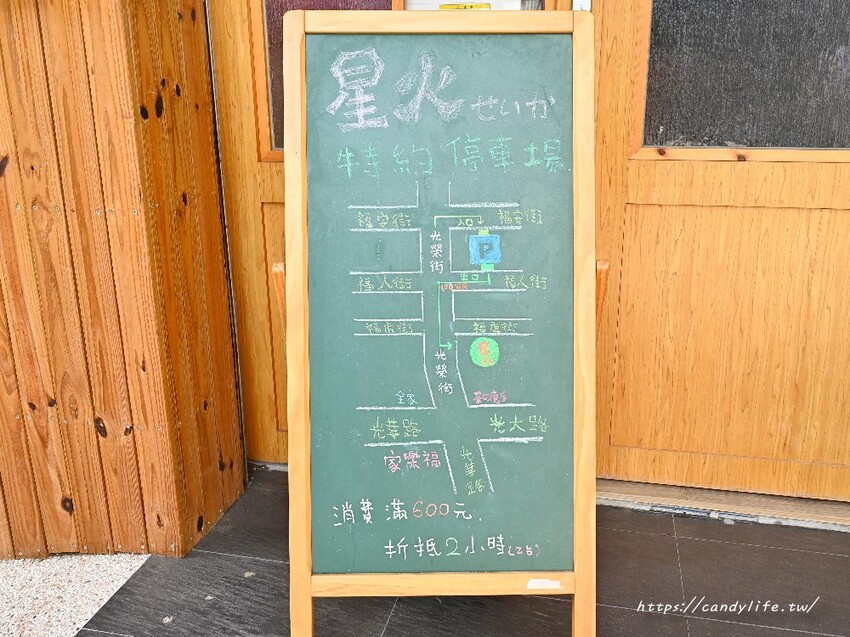 星火 せいか
特約停車場
福安街 入口 福安街
光榮街
P
出口
福人街 福人街
福康街 福康街
光榮街
全家
光華路 光大路
家樂福
光華路
消費滿600元,
折抵2小時(2台)
https://candylife.tw/